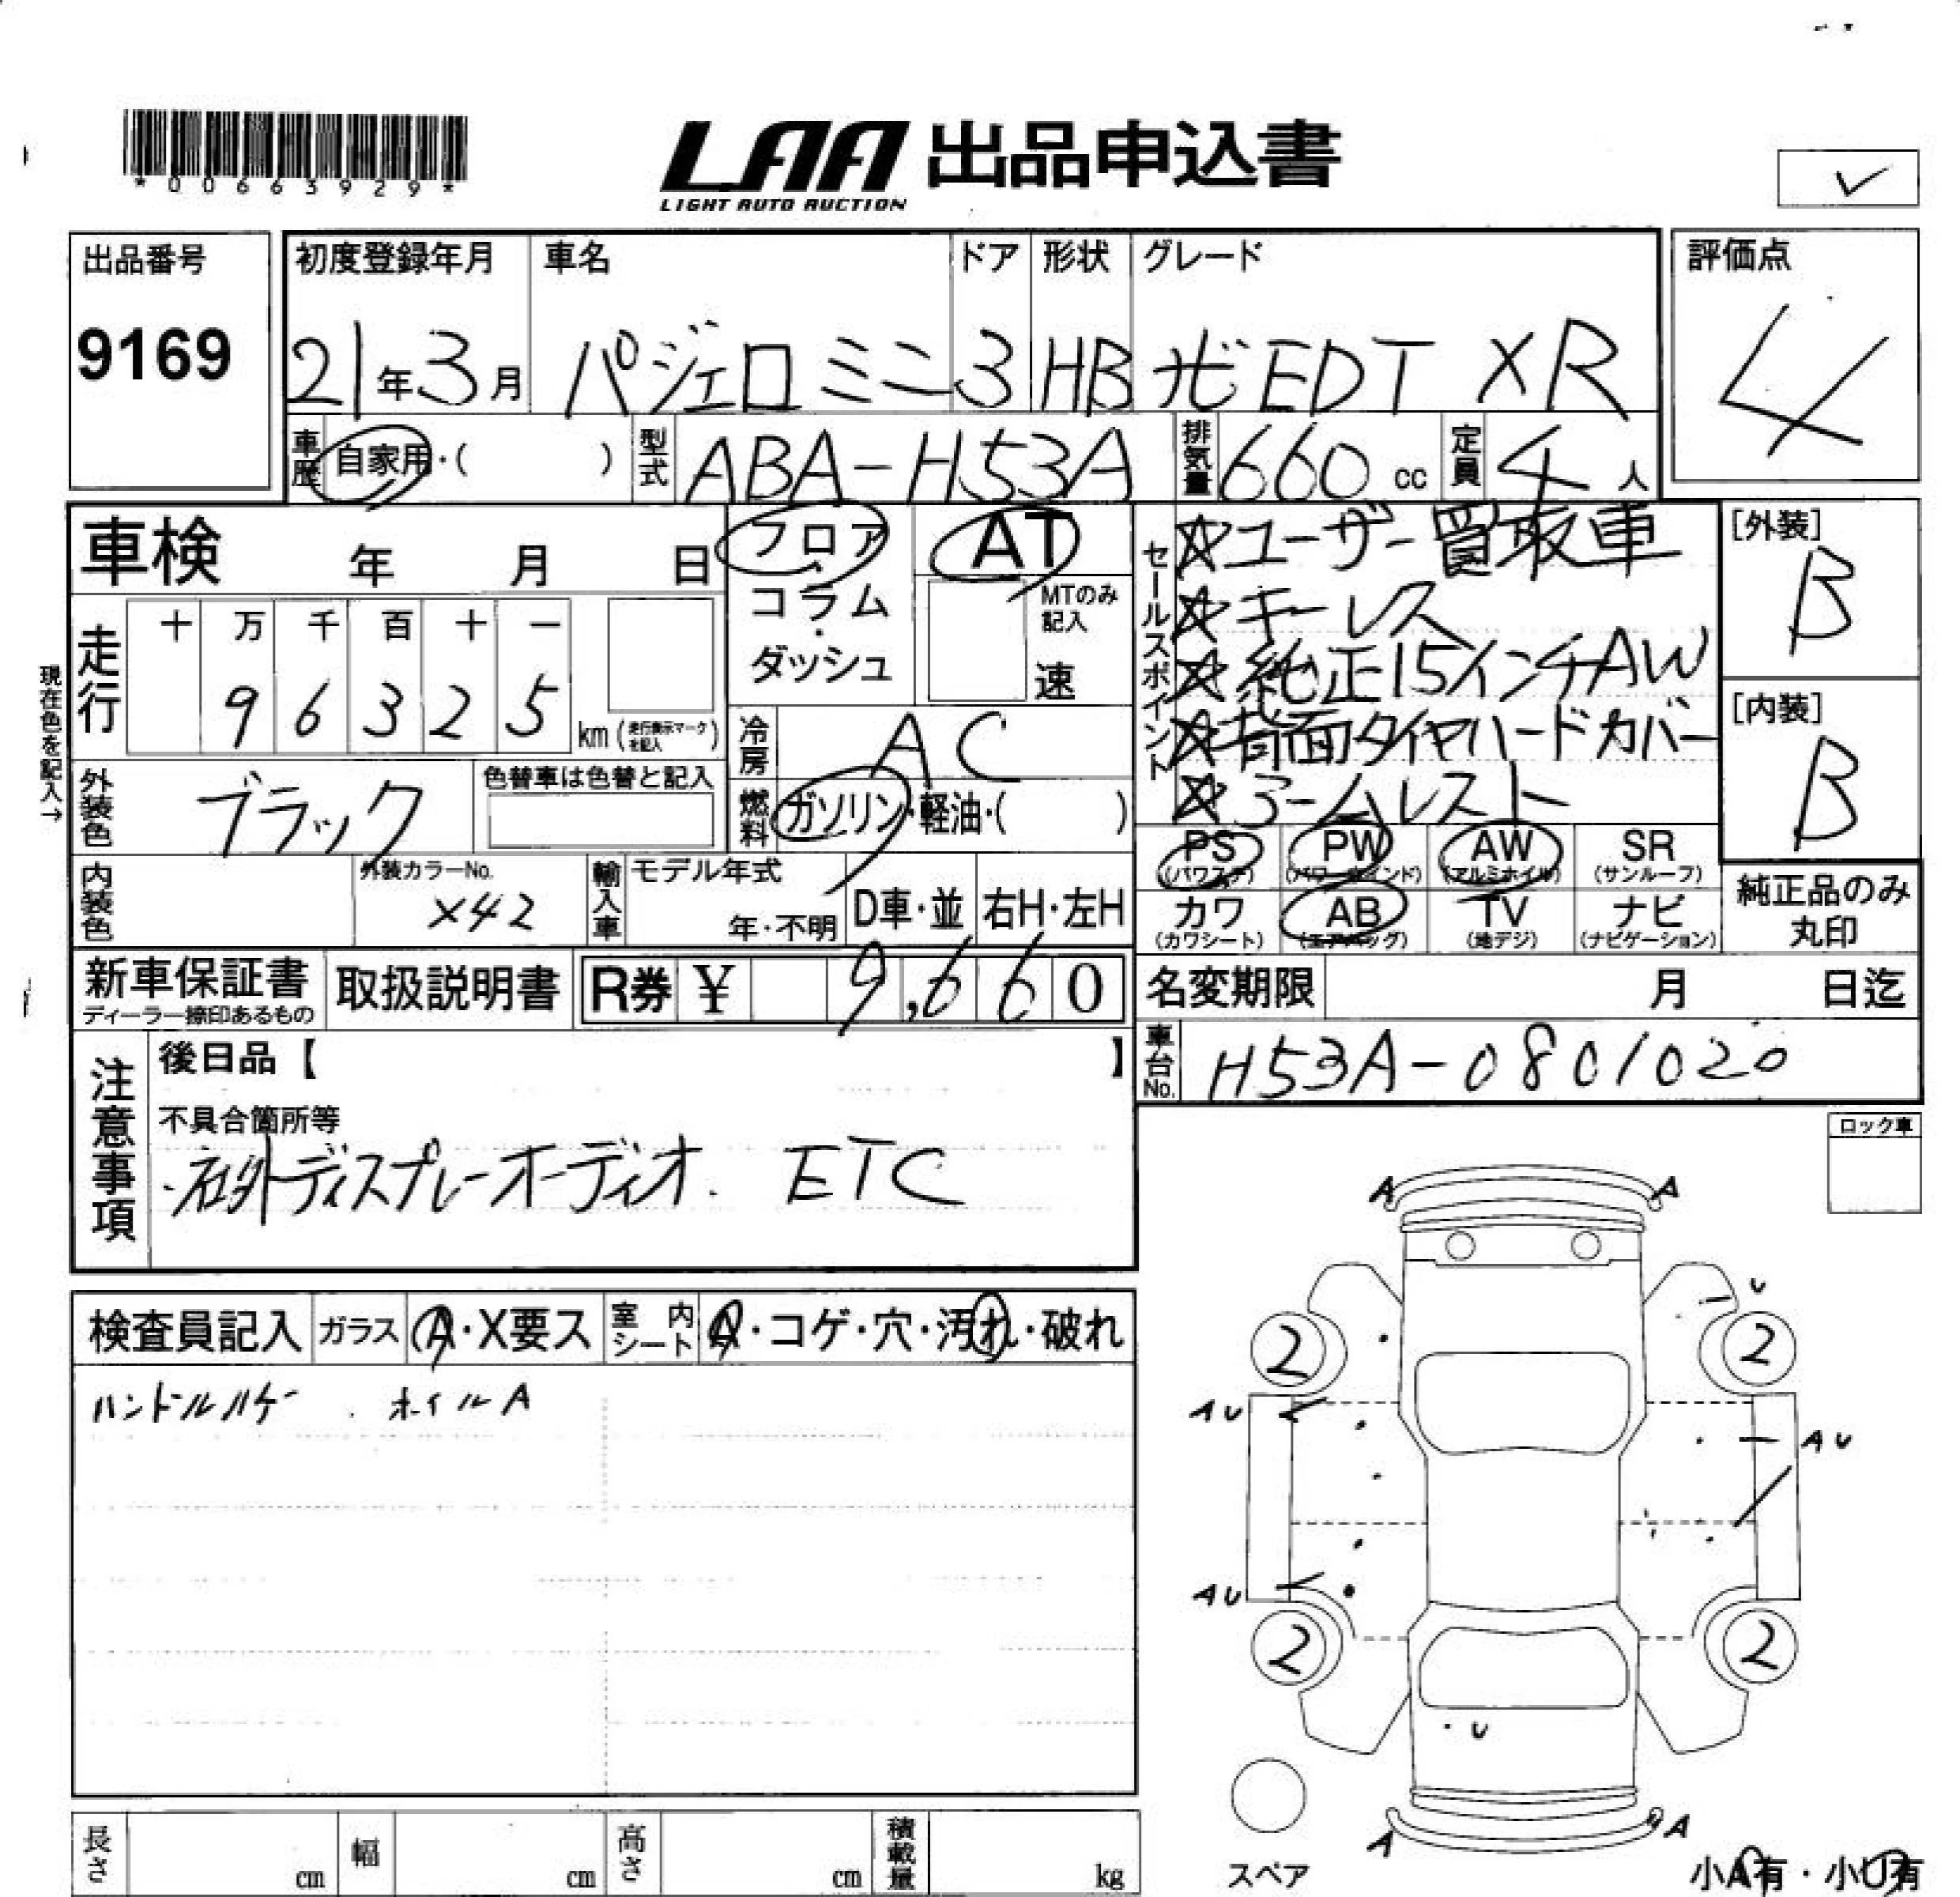 *00663929*
LAA 出品申込書
LIGHT AUTO AUCTION
出品番号
9169
初度登録年月 車名 ドア 形状 グレード
21年3月 パジェロミニ 3 HB XR
評価点
4
車歴 自家用・( ) 型式 ABA-H53A 排気量 660cc 定員 4人
車検 年 月 日
フロア
コラム
・
ダッシュ
AT
MTのみ
記入
速
現在色を記入→
走行 十 万 千 百 十 一
9 6 3 2 5 km(走行表示マークを記入)
冷房 AC
外装色 ブラック 色替車は色替と記入
燃料 ガソリン・軽油・( )
内装色 外装カラーNo. X42
輸入車 モデル年式 年・不明 D車・並 右H・左H
セールスポイント
☆ユーザー買取車
☆キーレス
☆純正15インチAW
☆背面タイヤハードカバー
☆アームレスト
[外装]
B
[内装]
B
PS PW AW SR
(パワステ) (パワーウインド) (アルミホイル) (サンルーフ)
カワ AB TV ナビ
(カワシート) (エアバッグ) (地デジ) (ナビゲーション)
純正品のみ
丸印
新車保証書
ディーラー捺印あるもの
取扱説明書 R券 ¥ 9,660
名変期限 月 日迄
車台No. H53A-0801020
注意事項
後日品【 】
不具合箇所等
・社外ディスプレーオーディオ. ETC
ロック車
検査員記入 ガラス A・X要ス 室内シート A・コゲ・穴・汚れ・破れ
ハンドルハゲー . ホイルA
A A
U
2 2
AU AU
AU
2 2
・U
A A
スペア
小A有・小U有
長さ cm 幅 cm 高さ cm 積載量 kg